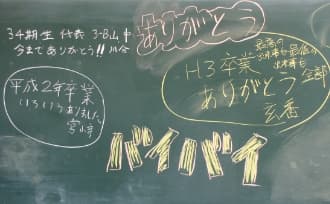 34期生 代表 3-B山中
今までありがとう!!
ありがとう
平成2年卒業
いろいろありました
H3卒業
ありがとう
玄番
バイバイ